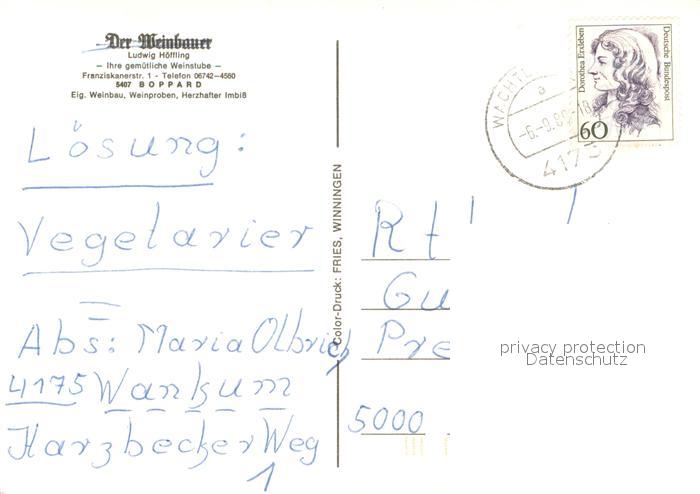 Der Weinbauer
Ludwig Höffling
— Ihre gemütliche Weinstube —
Franziskanerstr. 1 - Telefon 06742-4560
5407 BOPPARD
Eig. Weinbau, Weinproben, Herzhafter Imbiß
Lösung:
Vegetarier
Abs: Maria Olbrich
4175 Wankum
Harzbecker Weg
1
Color-Druck: FRIES, WINNINGEN
Dorothea Erxleben
Deutsche Bundespost
60
a
4175
Rt
Gu
Pre
5000
privacy protection
Datenschutz